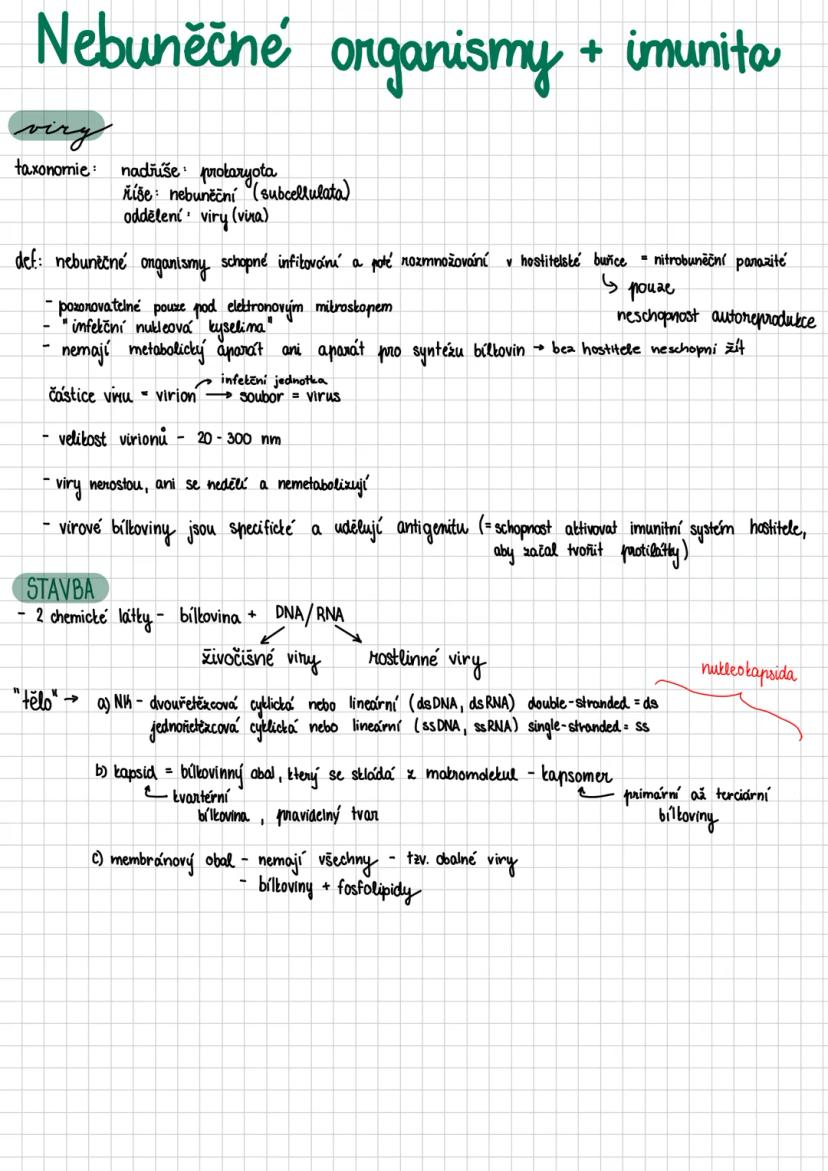 Nebuněčné organismy + imunita
viry
taxonomie: nadříše: prokaryota
říše: nebuněční (subcellulata)
oddělení: viry (vira)
def.: nebuněčné organismy schopné infikování a poté rozmnožování v hostitelské buňce = nitrobuněční parazité
↳ pouze
neschopnost autoreprodukce
- pozorovatelné pouze pod elektronovým mikroskopem
- "infekční nukleová kyselina"
- nemají metabolický aparát ani aparát pro syntézu bílkovin → bez hostitele neschopní žít
infekční jednotka
částice viru = virion → soubor = virus
- velikost virionů - 20 - 300 nm
- viry nerostou, ani se nedělí a nemetabolizují
- virové bílkoviny jsou specifické a udělují antigenitu (= schopnost aktivovat imunitní systém hostitele,
aby začal tvořit protilátky)
STAVBA
- 2 chemické látky - bílkovina + DNA/RNA
živočišné viry rostlinné viry
nukleokapsida
"tělo" → a) NK - dvouřetězcová cyklická nebo lineární (dsDNA, dsRNA) double-stranded = ds
jednořetězcová cyklická nebo lineární (ssDNA, ssRNA) single-stranded = ss
b) kapsid = bílkovinný obal, který se skládá z makromolekul - kapsomer
kvartérní primární až terciární
bílkovina, pravidelný tvar bílkoviny
c) membránový obal - nemají všechny - tzv. obalné viry
- bílkoviny + fosfolipidy